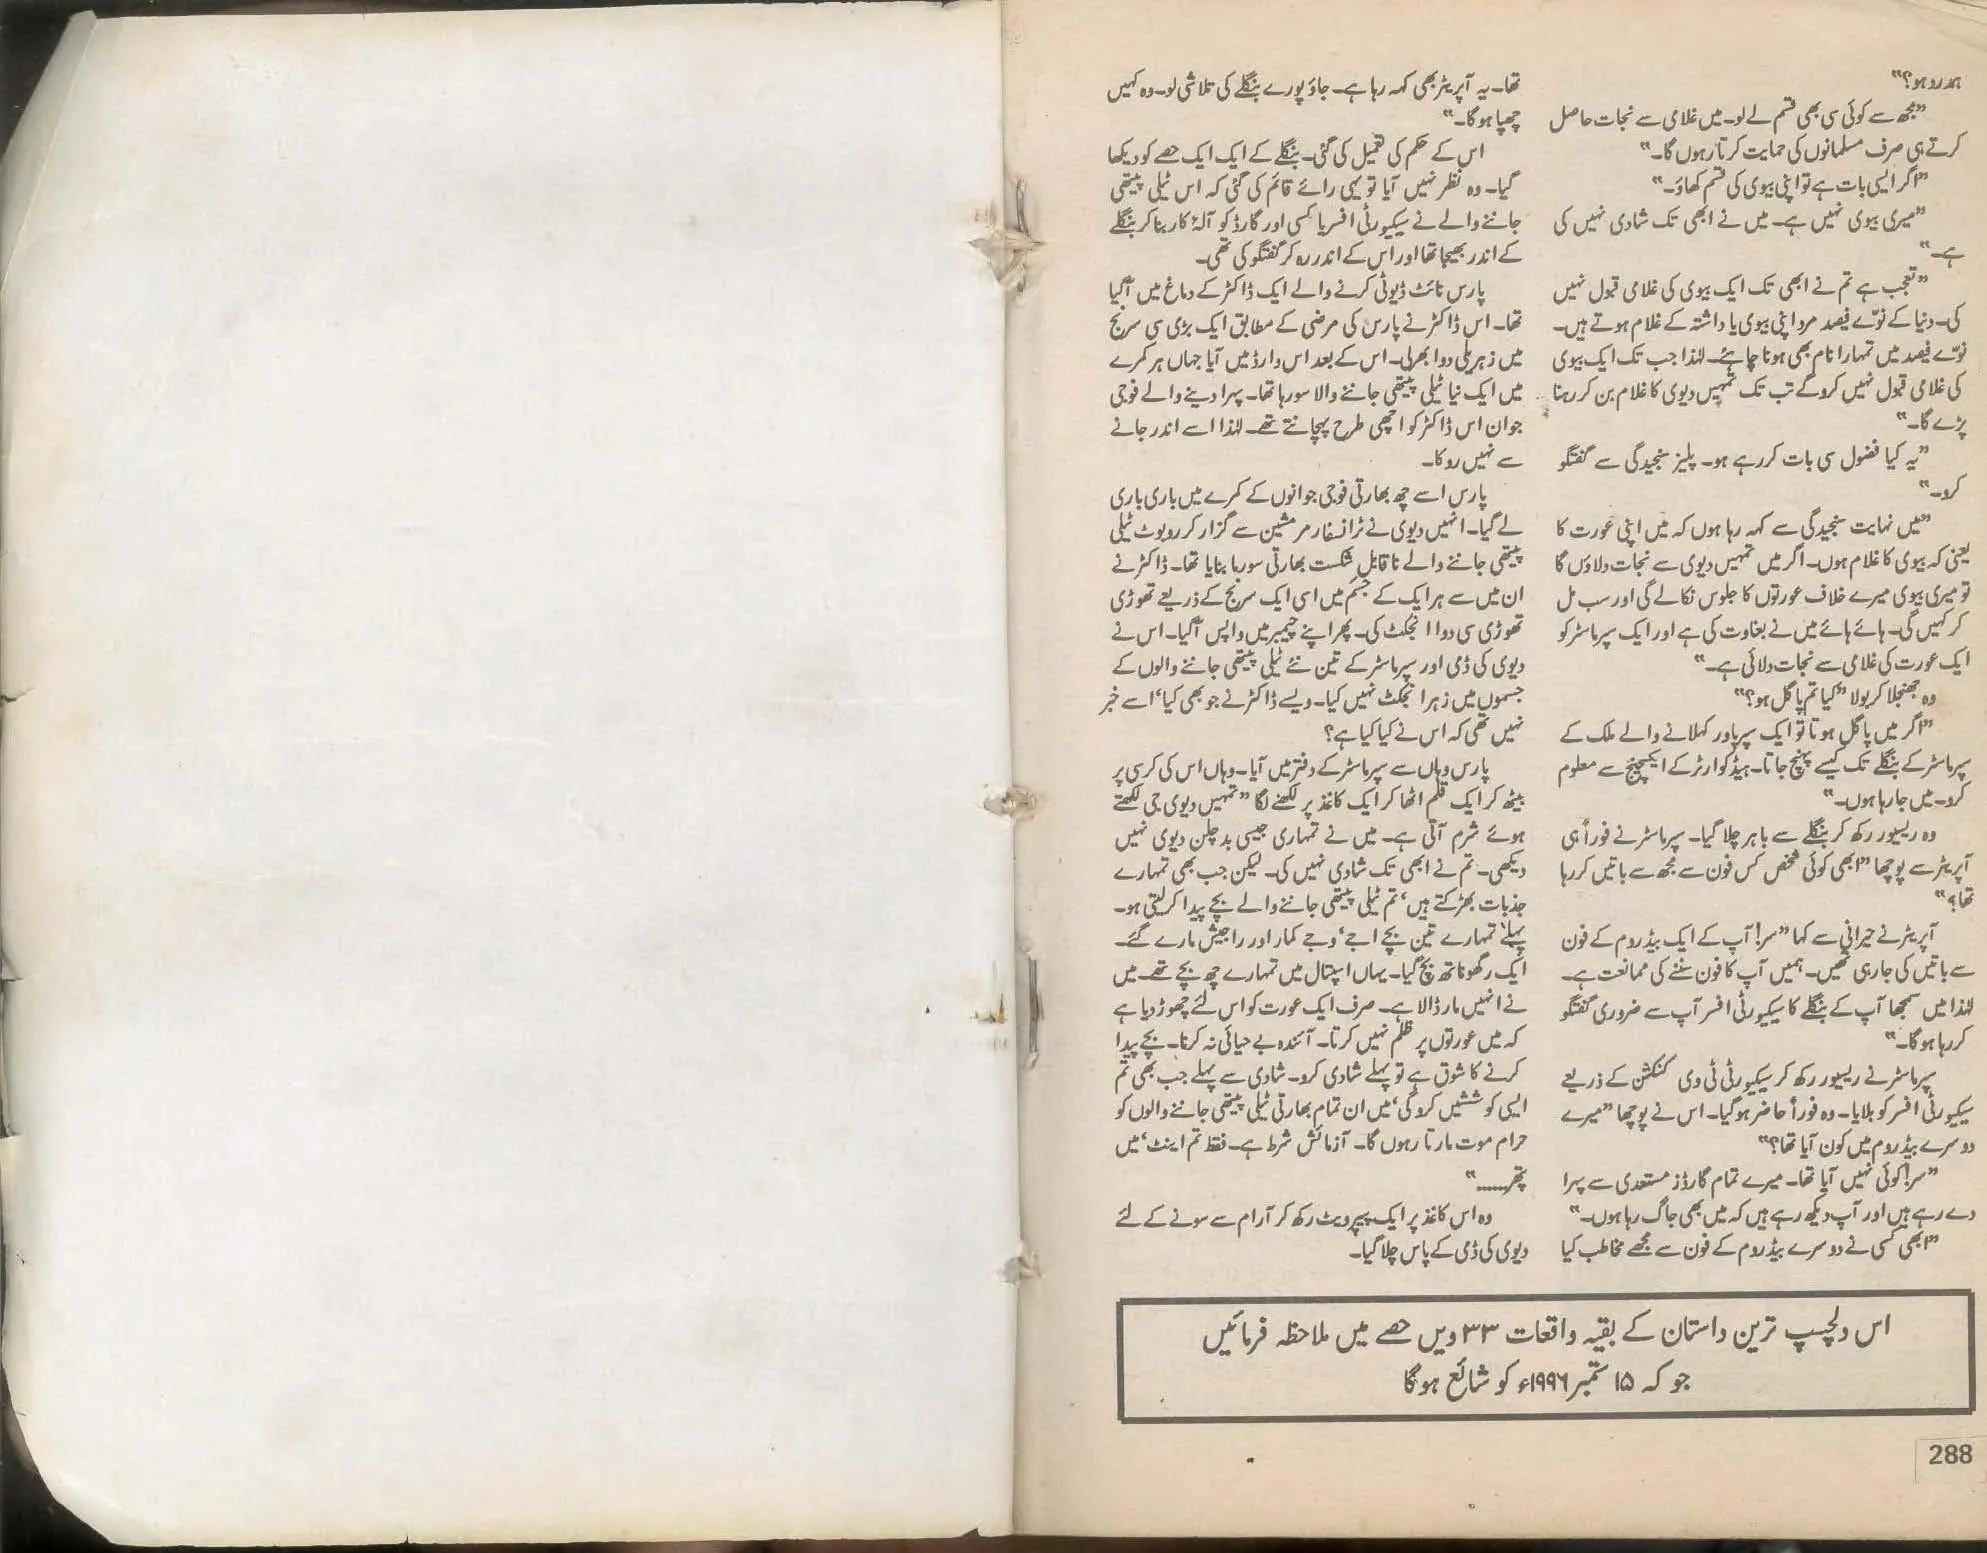 ہمدرد ہو؟“
”مجھ سے کوئی سی بھی قسم لے لو۔ میں غلامی سے نجات حاصل
کرتے ہی صرف مسلمانوں کی حمایت کرتا رہوں گا۔“
”اگر ایسی بات ہے تو اپنی بیوی کی قسم کھاؤ۔“
”میری بیوی نہیں ہے۔ میں نے ابھی تک شادی نہیں کی
ہے۔“
”تعجب ہے تم نے ابھی تک ایک بیوی کی غلامی قبول نہیں
کی۔ دنیا کے نوّے فیصد مرد اپنی بیوی یا داشتہ کے غلام ہوتے ہیں۔
نوّے فیصد میں تمہارا نام بھی ہونا چاہئے۔ لہٰذا جب تک ایک بیوی
کی غلامی قبول نہیں کرو گے تب تک تمہیں دیوی کا غلام بن کر رہنا
پڑے گا۔“
”یہ کیا فضول سی بات کر رہے ہو۔ پلیز سنجیدگی سے گفتگو
کرو۔“
”میں نہایت سنجیدگی سے کہہ رہا ہوں کہ میں اپنی عورت کا
یعنی کہ بیوی کا غلام ہوں۔ اگر میں تمہیں دیوی سے نجات دلاؤں گا
تو میری بیوی میرے خلاف عورتوں کا جلوس نکالے گی اور سب مل
کر کہیں گی۔ ہائے ہائے میں نے بغاوت کی ہے اور ایک سپر ماسٹر کو
ایک عورت کی غلامی سے نجات دلائی ہے۔“
وہ جھنجلا کر بولا ”کیا تم پاگل ہو؟“
”اگر میں پاگل ہوتا تو ایک سپر پاور کہلانے والے ملک کے
سپر ماسٹر کے بنگلے تک کیسے پہنچ جاتا۔ ہیڈ کوارٹر کے ایکسچینج سے معلوم
کرو۔ میں جا رہا ہوں۔“
وہ ریسیور رکھ کر بنگلے سے باہر چلا گیا۔ سپر ماسٹر نے فوراً ہی
آپریٹر سے پوچھا ”ابھی کوئی شخص کس فون سے مجھ سے باتیں کر رہا
تھا؟“
آپریٹر نے حیرانی سے کہا ”سر! آپ کے ایک بیڈ روم کے فون
سے باتیں کی جا رہی تھیں۔ ہمیں آپ کا فون سننے کی ممانعت ہے۔
لہٰذا میں سمجھا آپ کے بنگلے کا سیکیورٹی افسر آپ سے ضروری گفتگو
کر رہا ہو گا۔“
سپر ماسٹر نے ریسیور رکھ کر سیکیورٹی ٹی وی کنکشن کے ذریعے
سیکیورٹی افسر کو بلایا۔ وہ فوراً حاضر ہو گیا۔ اس نے پوچھا ”میرے
دوسرے بیڈ روم میں کون آیا تھا؟“
”سر! کوئی نہیں آیا تھا۔ میرے تمام گارڈز مستعدی سے پہرا
دے رہے ہیں اور آپ دیکھ رہے ہیں کہ میں بھی جاگ رہا ہوں۔“
”ابھی کسی نے دوسرے بیڈ روم کے فون سے مجھے مخاطب کیا
تھا۔ یہ آپریٹر بھی کہہ رہا ہے۔ جاؤ پورے بنگلے کی تلاشی لو۔ وہ کہیں
چھپا ہو گا۔“
اس کے حکم کی تعمیل کی گئی۔ بنگلے کے ایک ایک حصے کو دیکھا
گیا۔ وہ نظر نہیں آیا تو یہی رائے قائم کی گئی کہ اس ٹیلی پیتھی
جاننے والے نے سیکیورٹی افسر یا کسی اور گارڈ کو آلۂ کار بنا کر بنگلے
کے اندر بھیجا تھا اور اس کے اندر رہ کر گفتگو کی تھی۔
پارس نائٹ ڈیوٹی کرنے والے ایک ڈاکٹر کے دماغ میں آگیا
تھا۔ اس ڈاکٹر نے پارس کی مرضی کے مطابق ایک بڑی سی سرنج
میں زہریلی دوا بھر لی۔ اس کے بعد اس وارڈ میں آیا جہاں ہر کمرے
میں ایک نیا ٹیلی پیتھی جاننے والا سو رہا تھا۔ پہرا دینے والے فوجی
جوان اس ڈاکٹر کو اچھی طرح پہچانتے تھے۔ لہٰذا اسے اندر جانے
سے نہیں روکا۔
پارس اسے چھ بھارتی فوجی جوانوں کے کمرے میں باری باری
لے گیا۔ انہیں دیوی نے ٹرانسفارمر مشین سے گزار کر روبوٹ ٹیلی
پیتھی جاننے والے ناقابلِ شکست بھارتی سورما بنایا تھا۔ ڈاکٹر نے
ان میں سے ہر ایک کے جسم میں اسی ایک سرنج کے ذریعے تھوڑی
تھوڑی سی دوا انجکٹ کی۔ پھر اپنے چیمبر میں واپس آگیا۔ اس نے
دیوی کی ڈمی اور سپر ماسٹر کے تین نئے ٹیلی پیتھی جاننے والوں کے
جسموں میں زہر انجکٹ نہیں کیا۔ ویسے ڈاکٹر نے جو بھی کیا‘ اسے خبر
نہیں تھی کہ اس نے کیا کیا ہے؟
پارس وہاں سے سپر ماسٹر کے دفتر میں آیا۔ وہاں اس کی کرسی پر
بیٹھ کر ایک قلم اٹھا کر ایک کاغذ پر لکھنے لگا ”تمہیں دیوی جی لکھتے
ہوئے شرم آتی ہے۔ میں نے تمہاری جیسی بدچلن دیوی نہیں
دیکھی۔ تم نے ابھی تک شادی نہیں کی۔ لیکن جب بھی تمہارے
جذبات بھڑکتے ہیں‘ تم ٹیلی پیتھی جاننے والے بچے پیدا کر لیتی ہو۔
پہلے تمہارے تین بچے اجے‘ وجے کمار اور راجیش مارے گئے۔
ایک رگھوناتھ بچ گیا۔ یہاں اسپتال میں تمہارے چھ بچے تھے۔ میں
نے انہیں مار ڈالا ہے۔ صرف ایک عورت کو اس لئے چھوڑ دیا ہے
کہ میں عورتوں پر ظلم نہیں کرتا۔ آئندہ بے حیائی نہ کرنا۔ بچے پیدا
کرنے کا شوق ہے تو پہلے شادی کرو۔ شادی سے پہلے جب بھی تم
ایسی کوششیں کرو گی‘ میں ان تمام بھارتی ٹیلی پیتھی جاننے والوں کو
حرام موت مارتا رہوں گا۔ آزمائش شرط ہے۔ فقط تم اینٹ‘ میں
پتھر......“
وہ اس کاغذ پر ایک پیپر ویٹ رکھ کر آرام سے سونے کے لئے
دیوی کی ڈمی کے پاس چلا گیا۔
اس دلچسپ ترین داستان کے بقیہ واقعات ۳۳ ویں حصے میں ملاحظہ فرمائیں
جو کہ ۱۵ ستمبر ۱۹۹۶ء کو شائع ہو گا
288